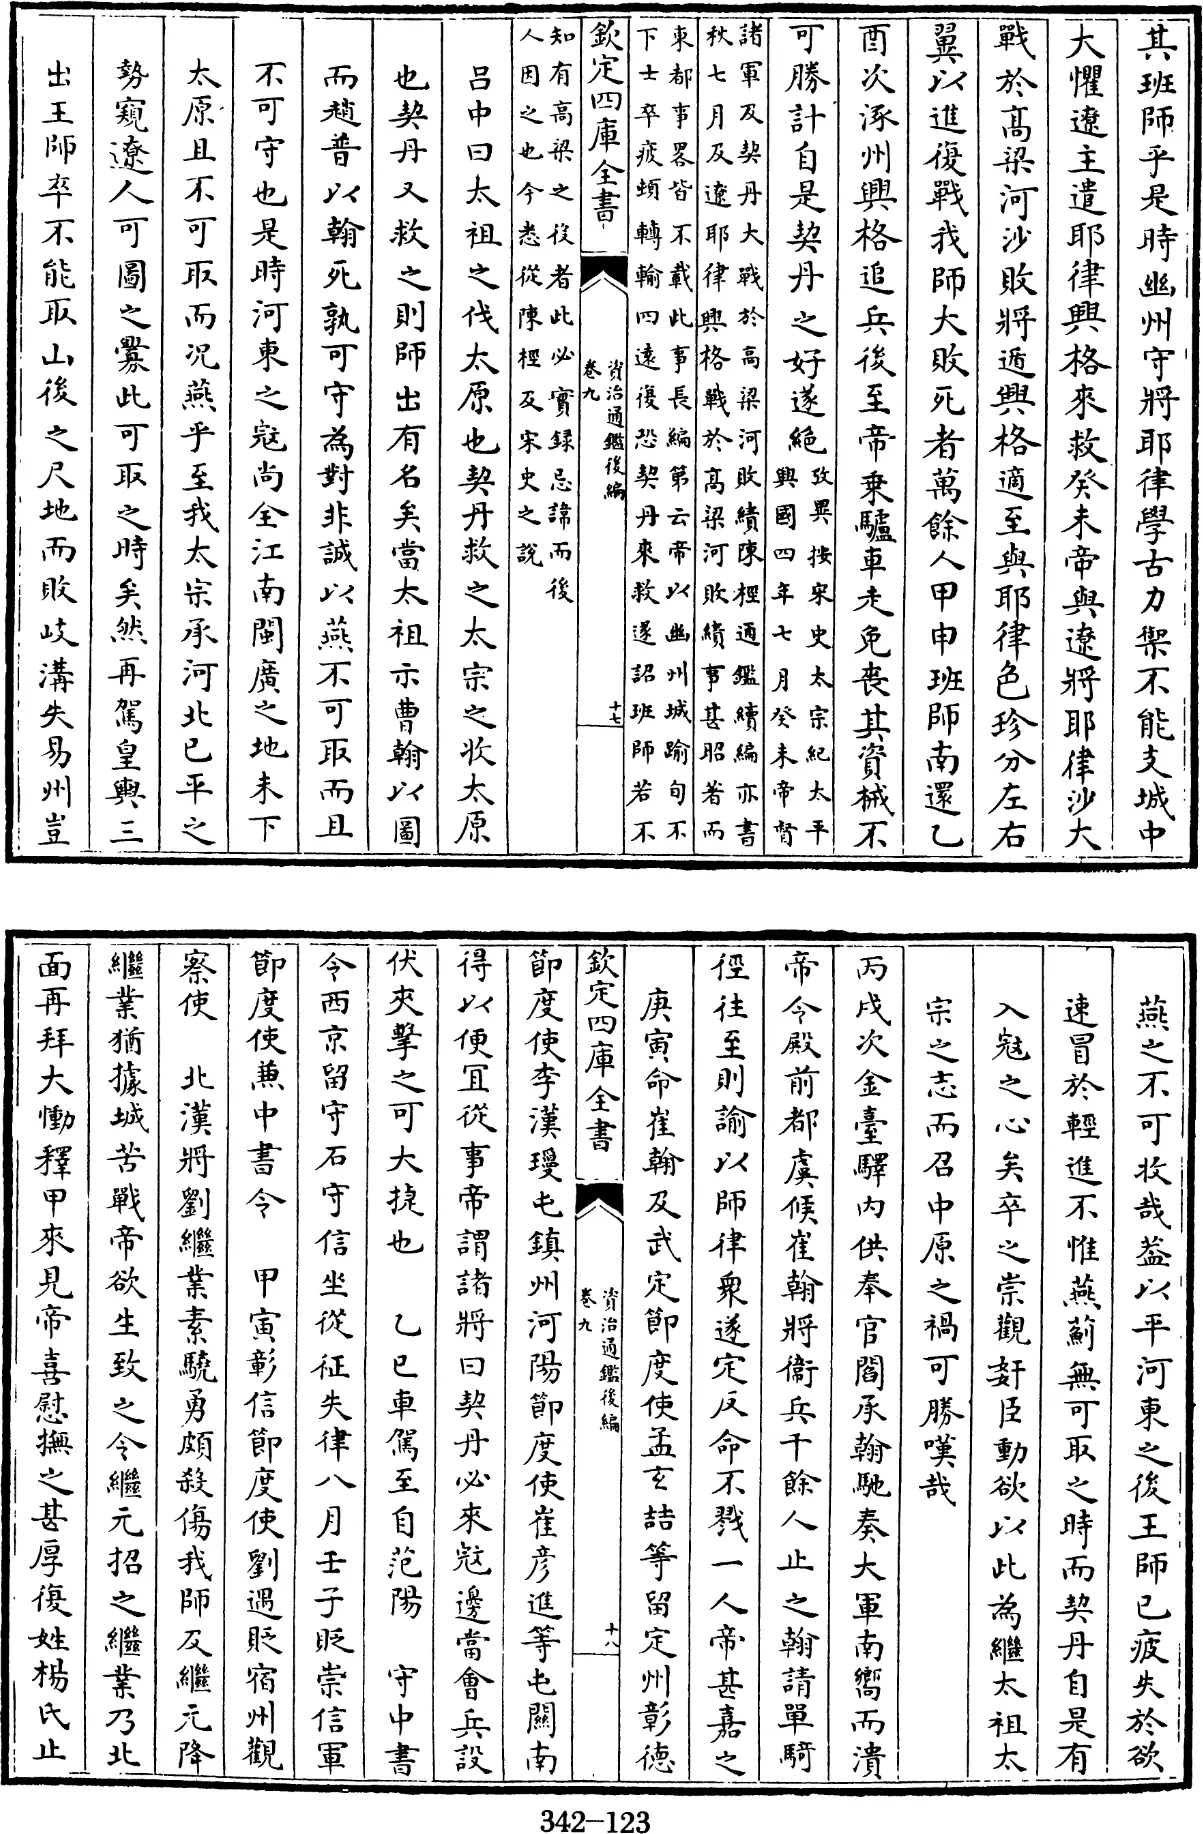 其班師乎是時幽州守將耶律學古力禦不能支城中
大懼遼主遣耶律興格來救癸未帝與遼將耶律沙大
戰於高梁河沙敗將遁興格適至與耶律色珍分左右
翼以進復戰我師大敗死者萬餘人甲申班師南還乙
酉次涿州興格追兵後至帝乗驢車走免喪其資械不
可勝計自是契丹之好遂絶
攷異按宋史太宗紀太平
興國四年七月癸未帝督
諸軍及契丹大戰於高梁河敗績陳桱通鑑續編亦書
秋七月及遼耶律興格戰於高梁河敗績事甚昭著而
東都事畧皆不載此事長編第云帝以幽州城踰旬不
下士卒疲頓轉輸四遠復恐契丹來救遂詔班師若不
欽定四庫全書
資治通鑑後編
卷九
十七
知有高梁之役者此必實録忌諱而後
人因之也今悉從陳桱及宋史之説
吕中曰太祖之伐太原也契丹救之太宗之收太原
也契丹又救之則師出有名矣當太祖示曹翰以圖
而趙普以翰死孰可守為對非誠以燕不可取而且
不可守也是時河東之宼尚全江南閩廣之地未下
太原且不可取而况燕乎至我太宗承河北已平之
勢窺遼人可圖之釁此可取之時矣然再駕皇輿三
出王師卒不能取山後之尺地而敗岐溝失易州豈
燕之不可收哉葢以平河東之後王師已疲失於欲
速冒於輕進不惟燕薊無可取之時而契丹自是有
入宼之心矣卒之崇觀奸臣動欲以此為繼太祖太
宗之志而召中原之禍可勝嘆哉
丙戌次金臺驛内供奉官閻承翰馳奏大軍南嚮而潰
帝令殿前都虞候崔翰將衞兵千餘人止之翰請單騎
徑往至則諭以師律衆遂定反命不戮一人帝甚嘉之
庚寅命崔翰及武定節度使孟玄喆等留定州彰德
欽定四庫全書
資治通鑑後編
卷九
十八
節度使李漢瓊屯鎮州河陽節度使崔彦進等屯關南
得以便宜從事帝謂諸將曰契丹必來宼邊當會兵設
伏夾擊之可大捷也　乙巳車駕至自范陽　守中書
令西京留守石守信坐從征失律八月壬子貶崇信軍
節度使兼中書令　甲寅彰信節度使劉遇貶宿州觀
察使　北漢將劉繼業素驍勇頗殺傷我師及繼元降
繼業猶據城苦戰帝欲生致之令繼元招之繼業乃北
面再拜大慟釋甲來見帝喜慰撫之甚厚復姓楊氏止
342-123